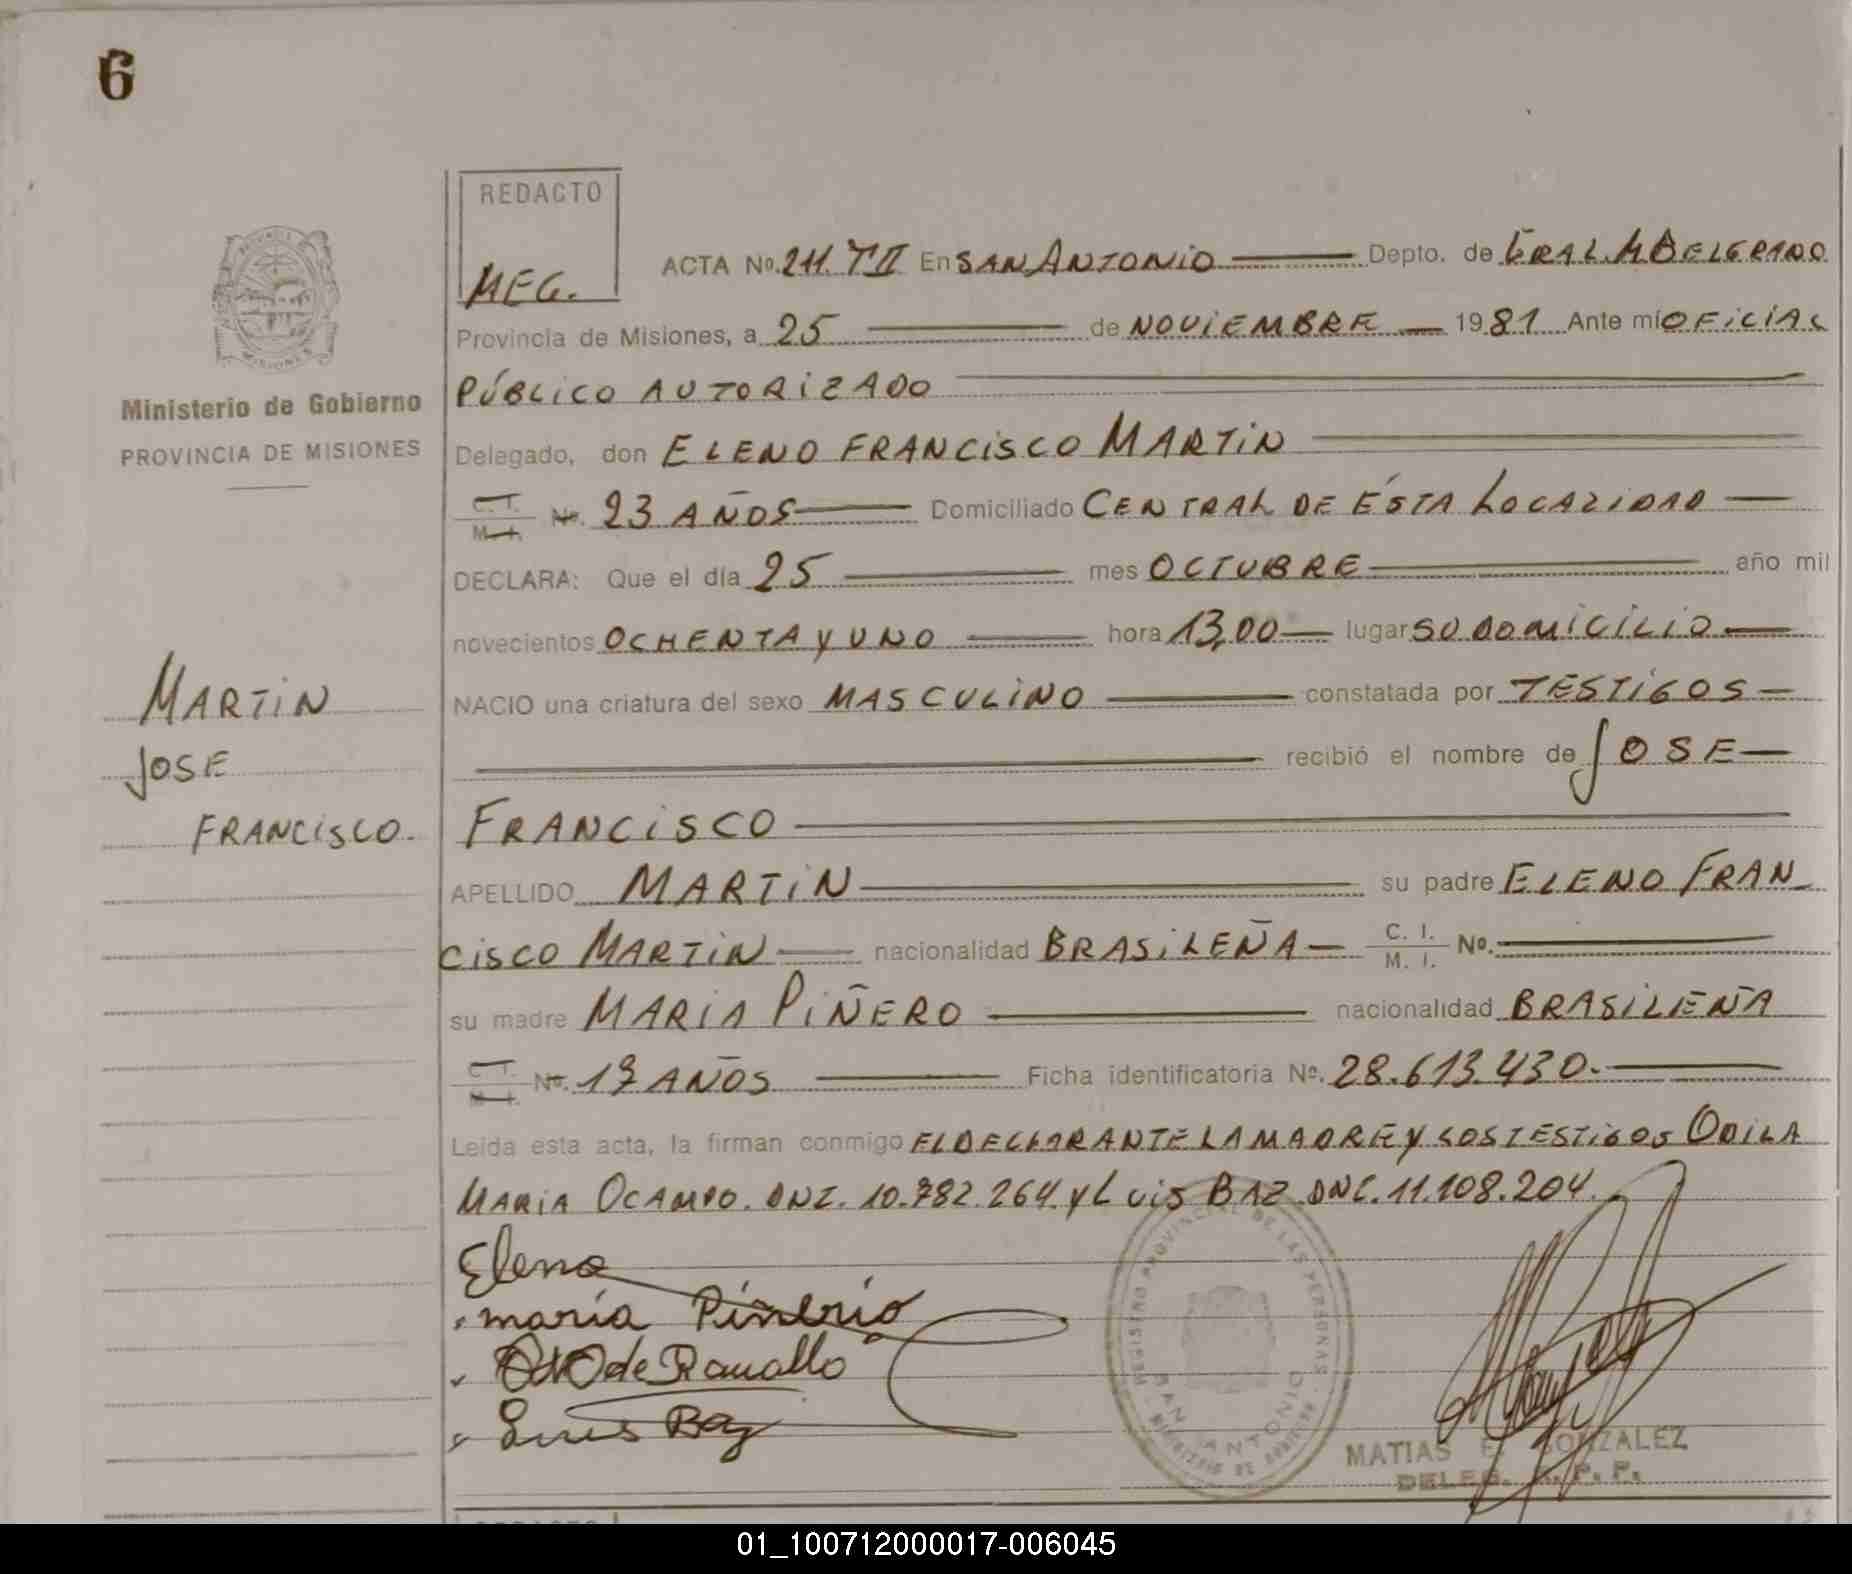 6
REDACTO
MEG.
ACTA No. 211. T II En SAN ANTONIO Depto. de GRAL. M BELGRANO
Provincia de Misiones, a 25 de NOViEMBRE 1981 Ante mí OFiCiAL
PÚBLiCO AUTORiZADO
Delegado, don ELENO FRANCiSCO MARTiN
C.I. M.I. No. 23 AÑOS Domiciliado CENTRAL DE ÉSTA LOCALIDAD
DECLARA: Que el día 25 mes OCTUBRE año mil
novecientos OCHENTA y UNO hora 13,00 lugar SU DOMiCiLiO
NACIO una criatura del sexo MASCULiNO constatada por TESTiGOS
recibió el nombre de JOSE
FRANCiSCO
APELLIDO MARTiN su padre ELENO FRAN
CiSCO MARTiN nacionalidad BRASiLEÑA C. I. M. I. No.
su madre MARIA PiÑERO nacionalidad BRASiLEÑA
C.I. M.I. No. 19 AÑOS Ficha identificatoria No. 28.613.430.
Leída esta acta, la firman conmigo EL DECLARANTE LA MADRE y LOS TESTiGOS ODiLA
MARiA OCAMPO. DNI. 10.782.264. y LUiS BAZ DNI. 11.108.204.
Ministerio de Gobierno
PROVINCIA DE MISIONES
MARTiN
JOSE
FRANCiSCO.
Eleno
maría Piñerio
de Ramallo
Luis Baz
REGISTRO PROVINCIAL DE LAS PERSONAS
SAN ANTONIO
MATIAS E. GONZALEZ
DELEG. R. P. P.
01_100712000017-006045